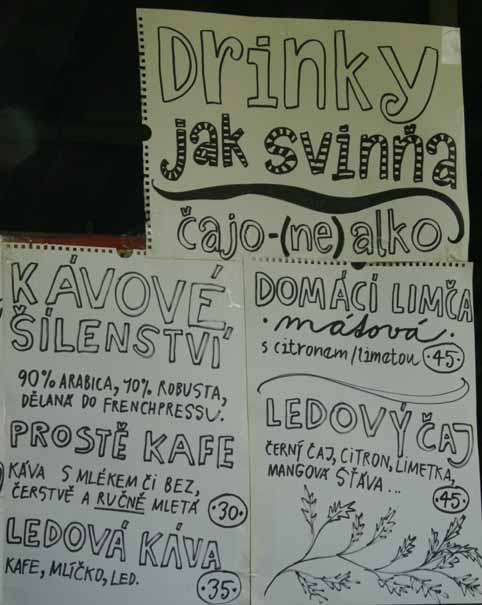 Drinky
jak svinňa
čajo-(ne)alko
KÁVOVÉ
ŠÍLENSTVÍ
90% ARABICA, 10% ROBUSTA,
DĚLANÁ DO FRENCHPRESSU.
PROSTĚ KAFE
KÁVA S MLÉKEM ČI BEZ,
ČERSTVĚ A RUČNĚ MLETÁ ·30·
LEDOVÁ KÁVA
KAFE, MLÍČKO, LED. ·35·
DOMÁCÍ LIMČA
· mátová ·
s citronem/limetou ·45·
LEDOVÝ ČAJ
ČERNÝ ČAJ, CITRON, LIMETKA,
MANGOVÁ ŠŤÁVA ... ·45·